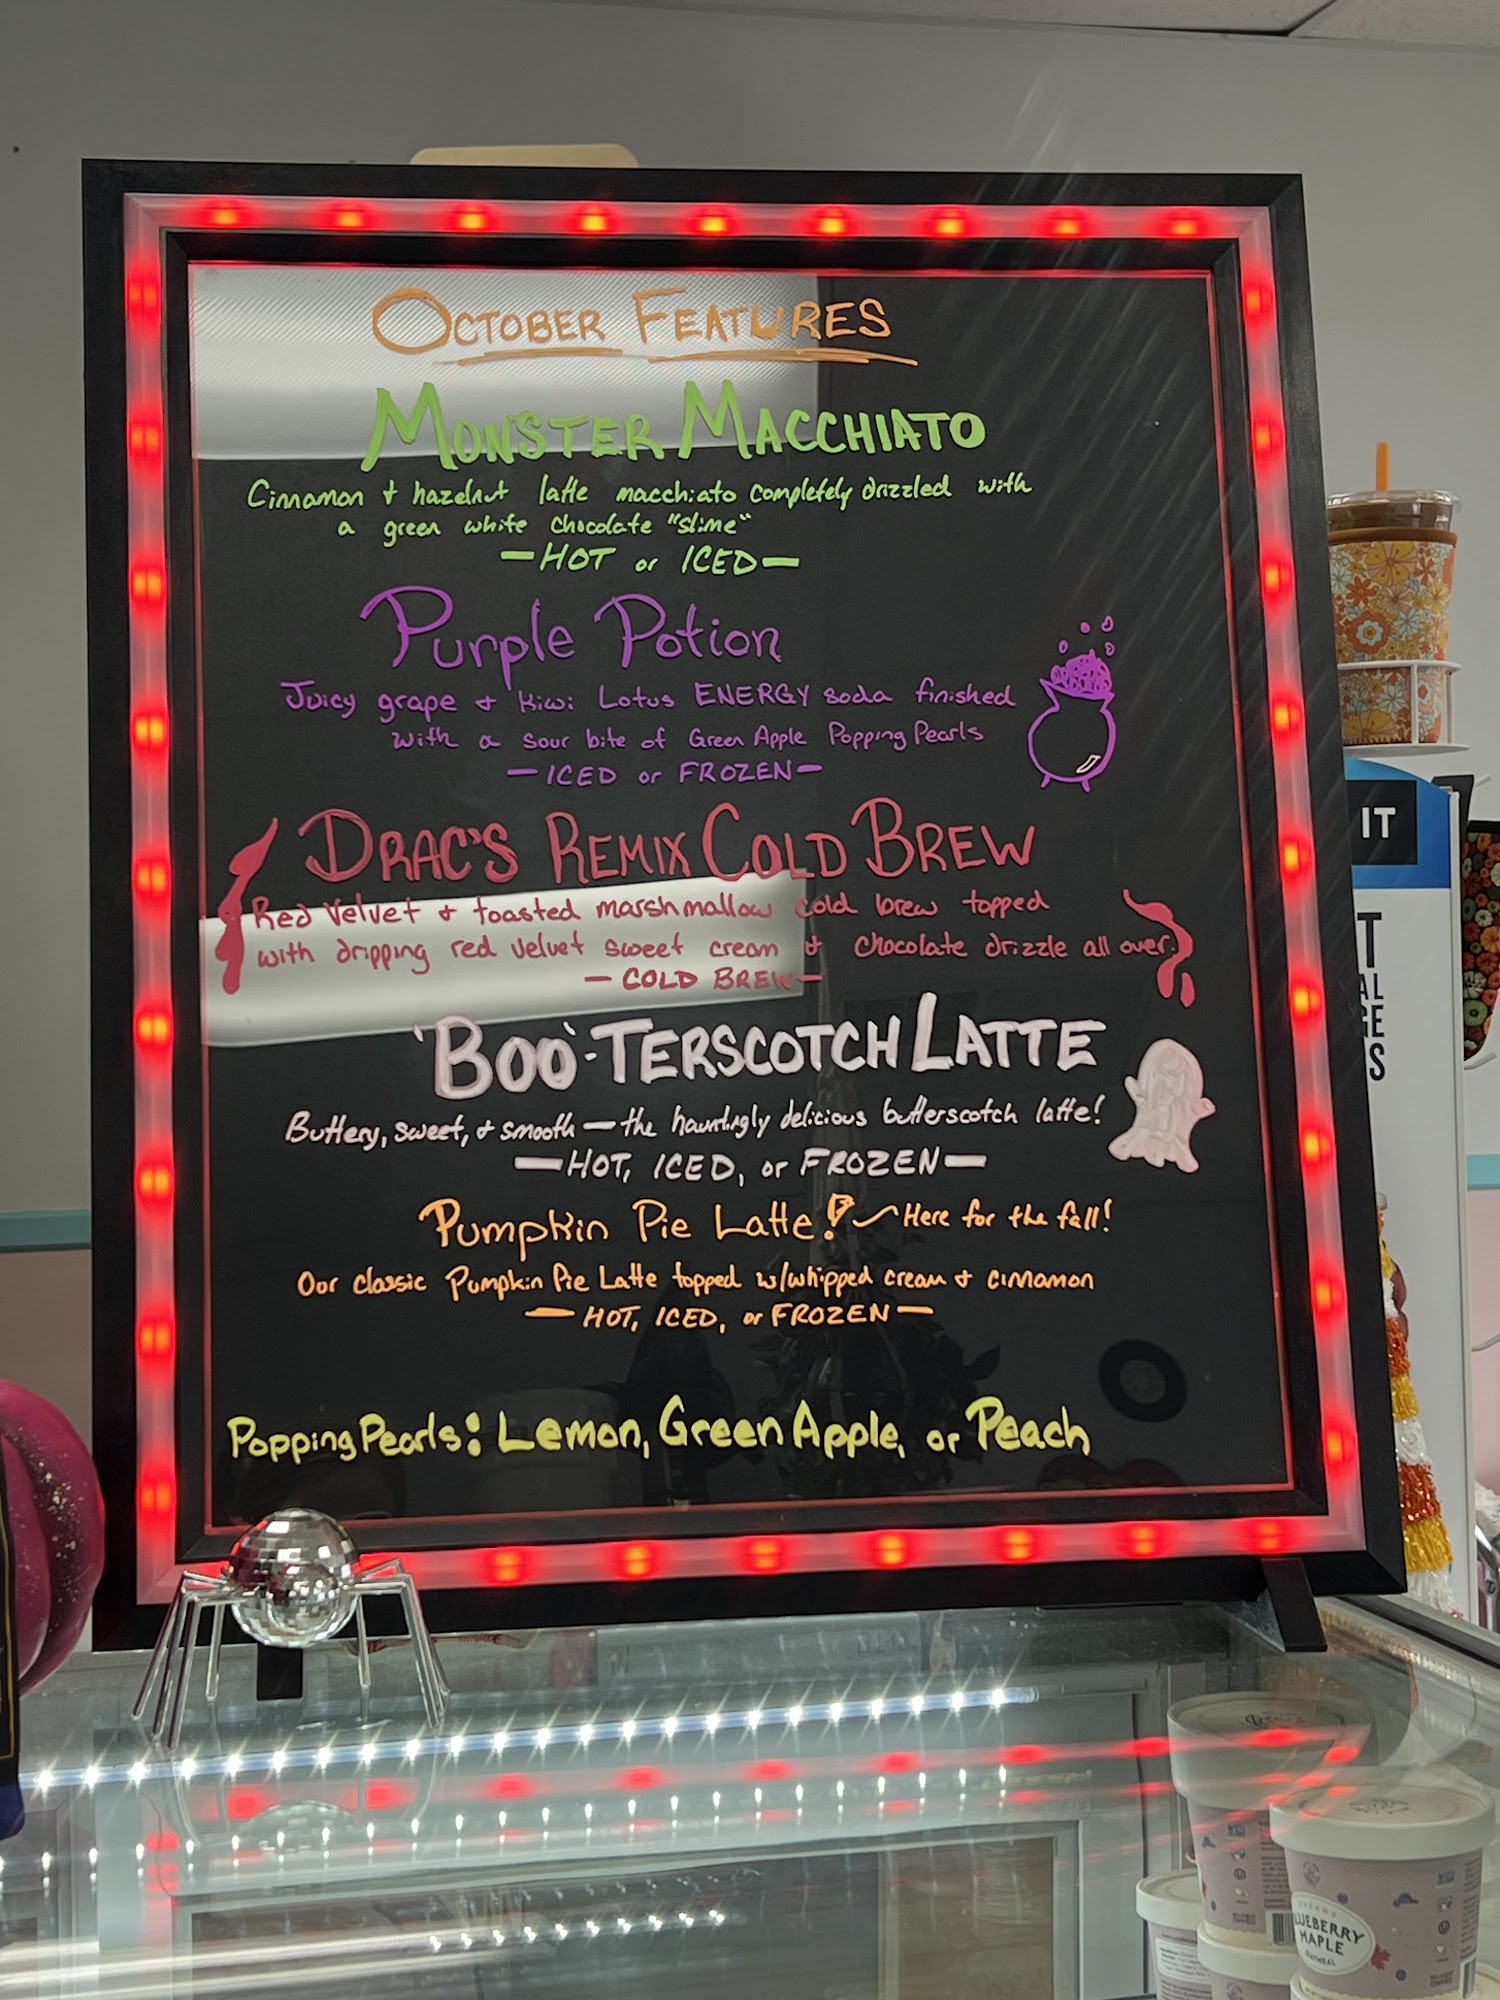 OCTOBER FEATURES
MONSTER MACCHIATO
Cinnamon + hazelnut latte macchiato completely drizzled with
a green white chocolate "slime"
—HOT or ICED—
Purple Potion
Juicy grape + kiwi Lotus ENERGY soda finished
with a sour bite of Green Apple Popping Pearls
—ICED or FROZEN—
DRAC'S REMIX COLD BREW
Red Velvet + toasted marshmallow cold brew topped
with dripping red velvet sweet cream + chocolate drizzle all over.
—COLD BREW—
'BOO'-TERSCOTCH LATTE
Buttery, sweet, + smooth — the hauntingly delicious butterscotch latte!
—HOT, ICED, or FROZEN—
Pumpkin Pie Latte! Here for the fall!
Our classic Pumpkin Pie Latte topped w/whipped cream + cinnamon
—HOT, ICED, or FROZEN—
Popping Pearls: Lemon, Green Apple, or Peach
IT
T
AL
GE
S
LUEBERRY
MAPLE
OATMEAL